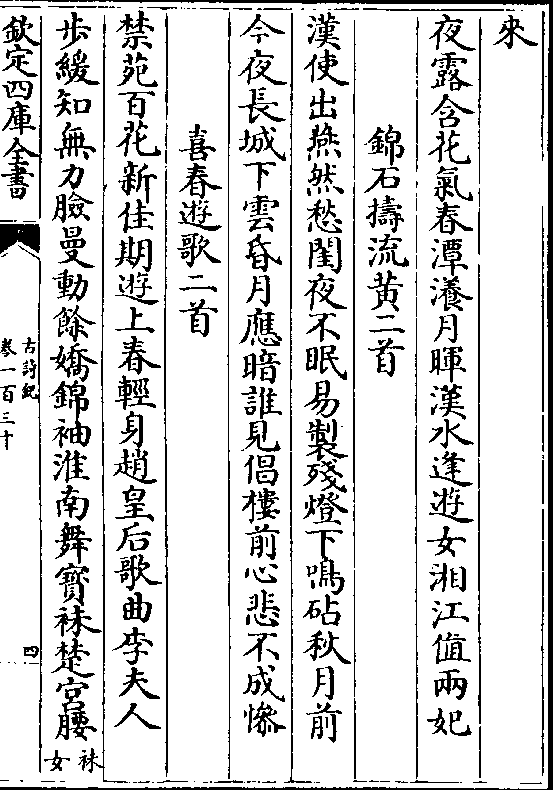 來
夜露含花氣春潭瀁月暉漢水逢遊女湘江值兩妃
錦石擣流黄二首
漢使出燕然愁閨夜不眠易製殘燈下鳴砧秋月前
今夜長城下雲昏月應暗誰見倡樓前心悲不成慘
喜春遊歌二首
禁苑百花新佳期遊上春輕身趙皇后歌曲李夫人
歩緩知無力臉曼動餘嬌錦袖淮南舞寳袜楚宫腰
袜
女
欽定四庫全書
古詩紀
卷一百三十
四